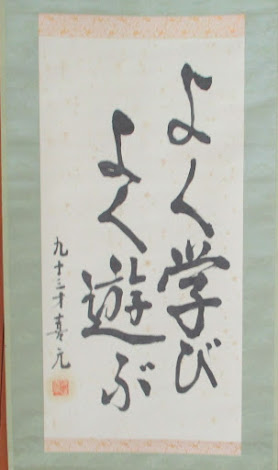 よく学び
よく遊ぶ
九十三才 喜元